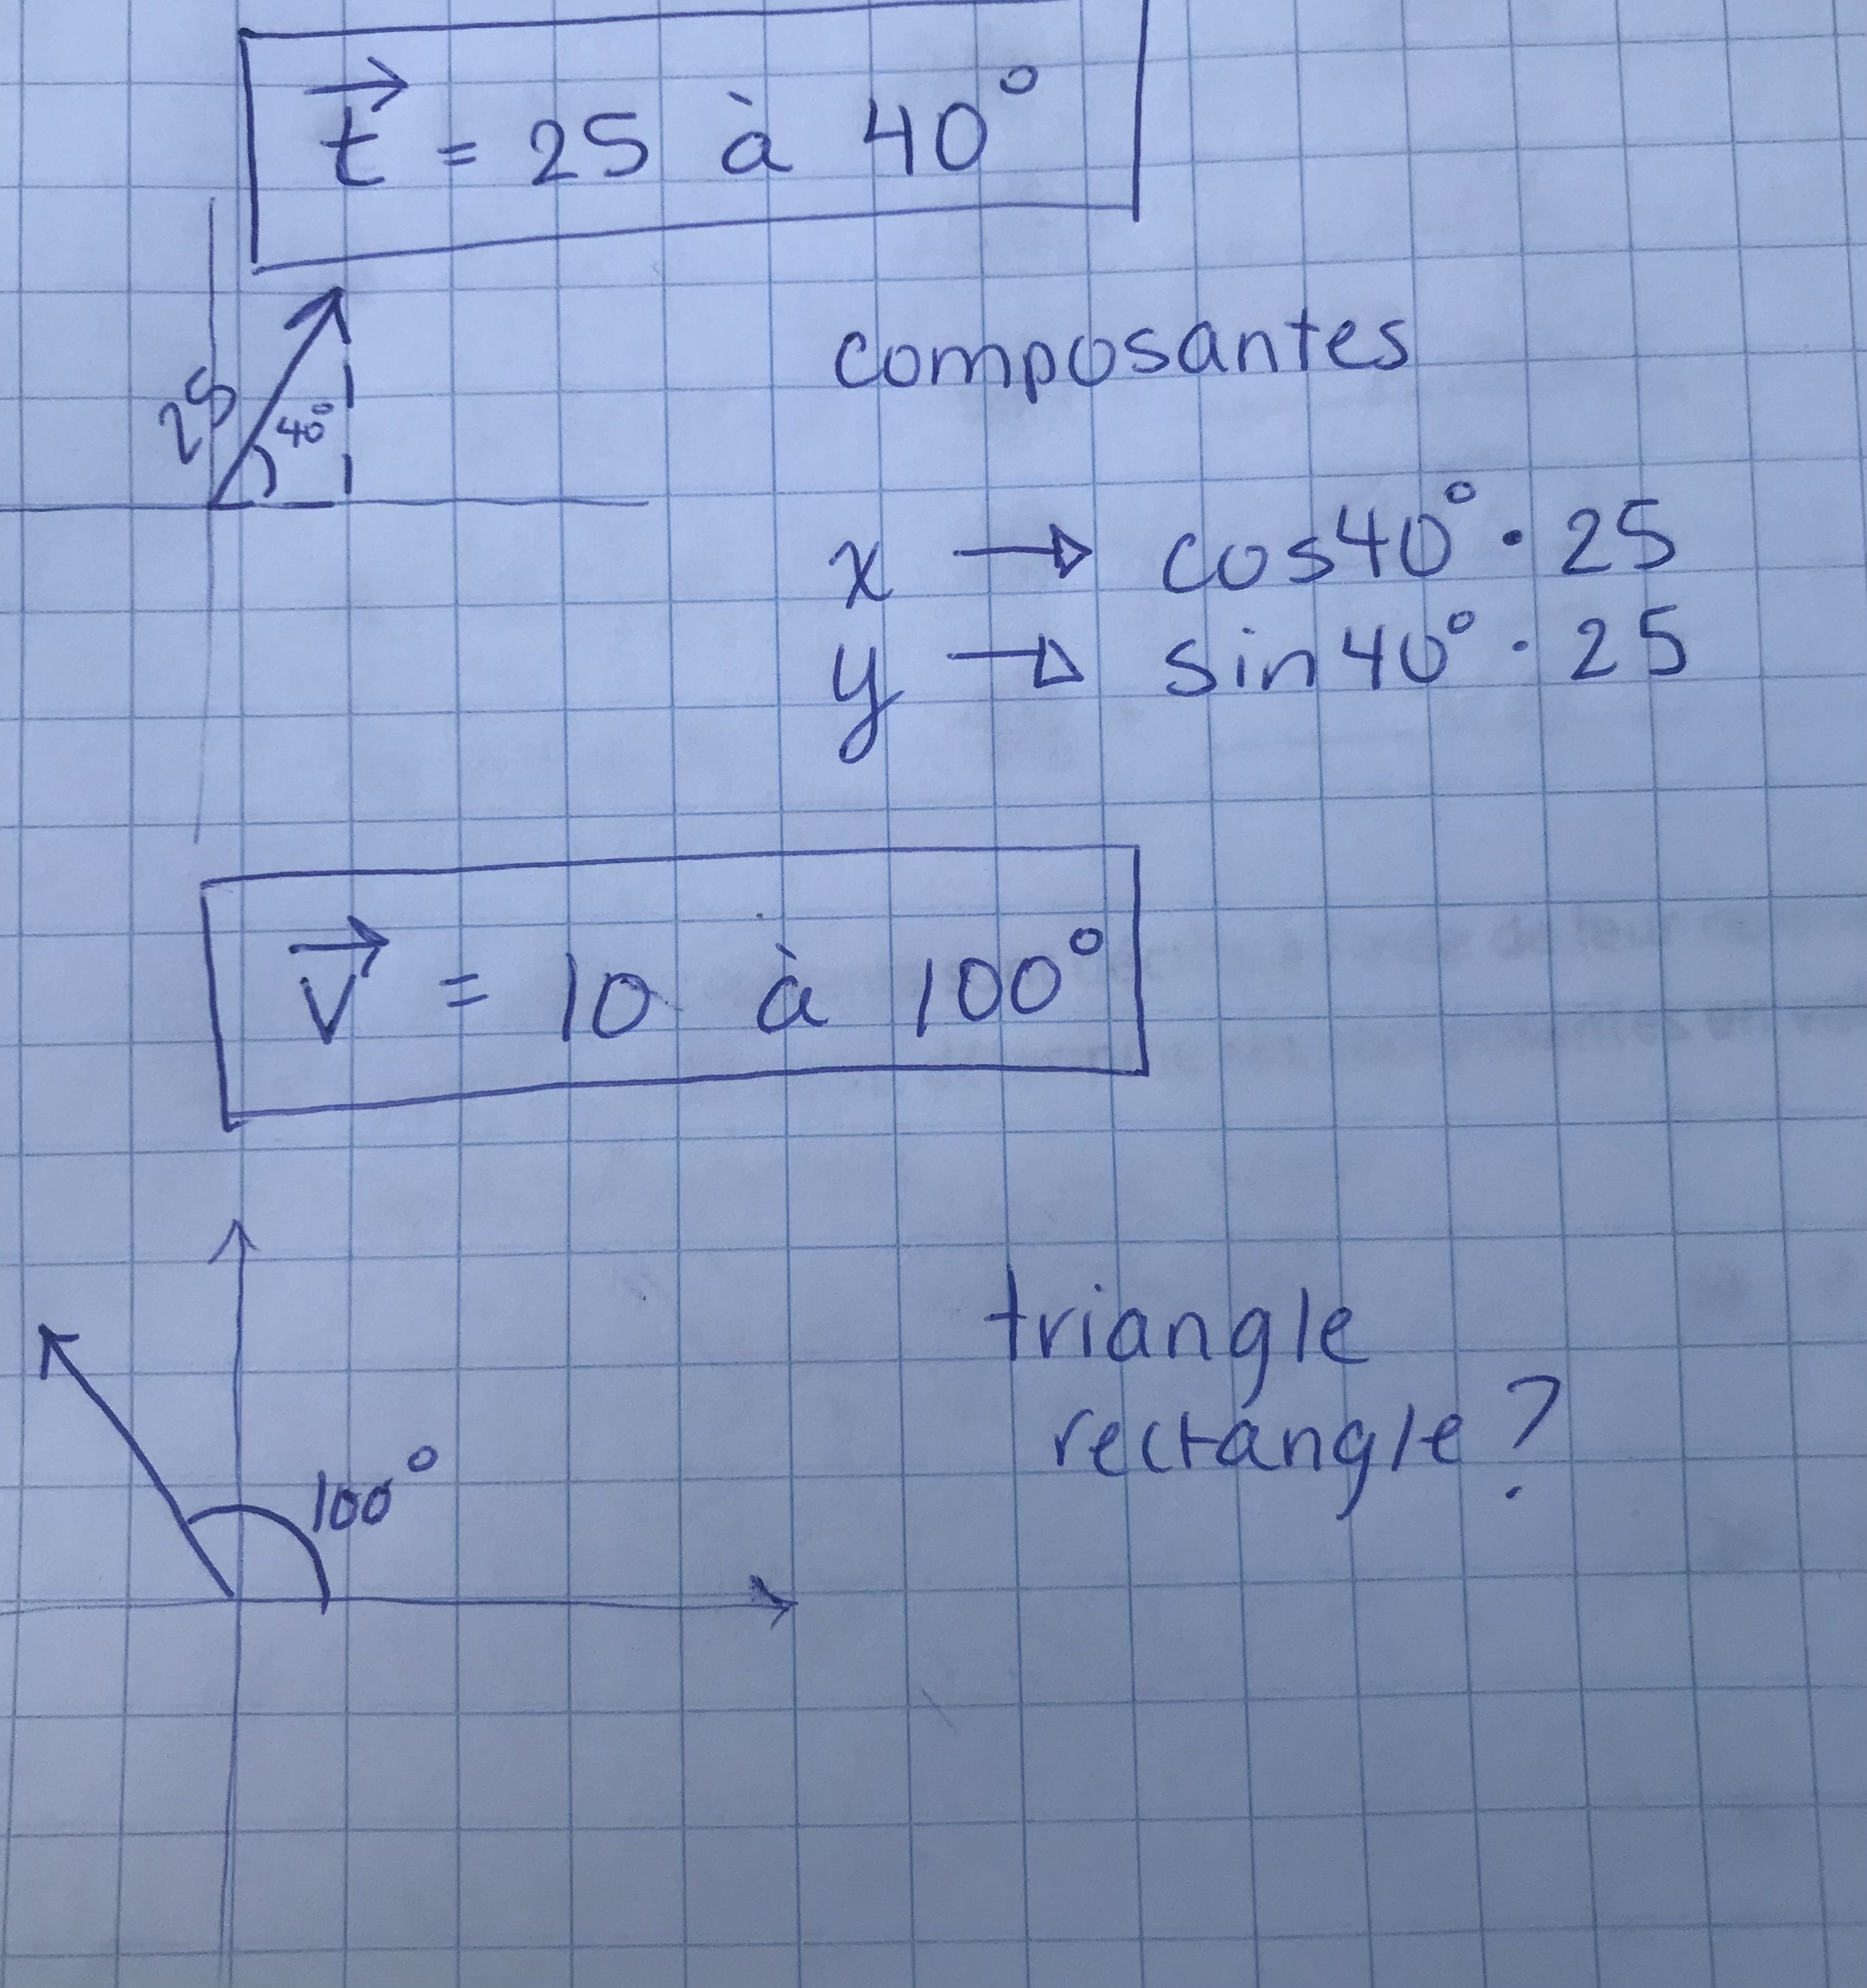 t⃗ = 25 à 40°
25
40°
composantes
x → cos40° · 25
y → sin40° · 25
v⃗ = 10 à 100°
100°
triangle
rectangle?